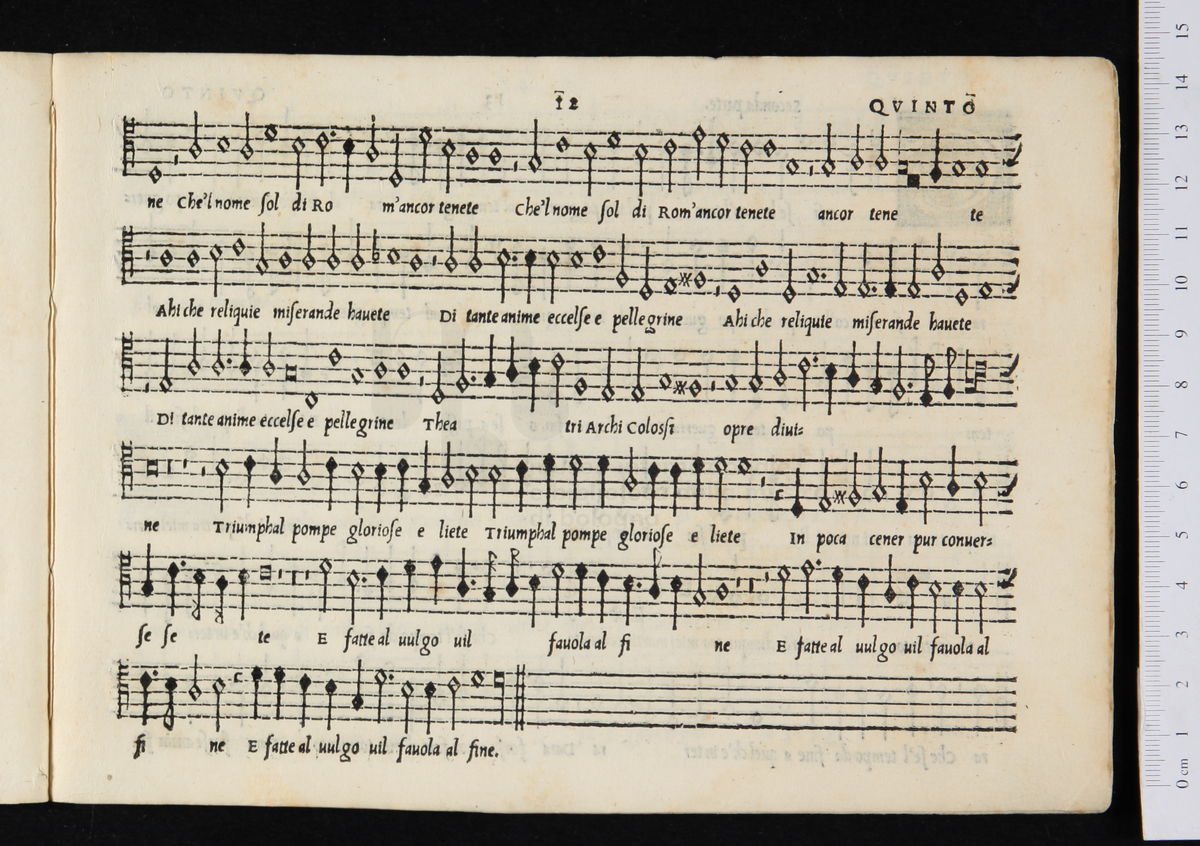 12 QVINTO
ne Che'l nome sol di Ro m'ancor tenete Che'l nome sol di Rom'ancor tenete ancor tene te
Ahi che reliquie miserande hauete Di tante anime eccelse e pellegrine Ahi che reliquie miserande hauete
Di tante anime eccelse e pellegrine Thea tri Archi Colossi opre diui=
ne Triumphal pompe gloriose e liete Triumphal pompe gloriose e liete In poca cener pur conuer=
se se te E fatte al uulgo uil fauola al fi ne E fatte al uulgo uil fauola al
fi ne E fatte al uulgo uil fauola al fine.
0 cm 1 2 3 4 5 6 7 8 9 10 11 12 13 14 15